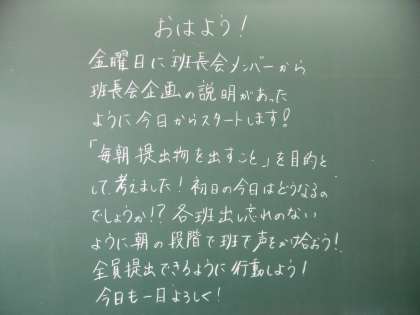 おはよう!
金曜日に班長会メンバーから
班長会企画の説明があった
ように今日からスタートします!
「毎朝提出物を出すこと」を目的と
して考えました!初日の今日はどうなるの
でしょうか!?各班出し忘れのない
ように朝の段階で班で声をかけ合おう!
全員提出できるように行動しよう!
今日も一日よろしく!